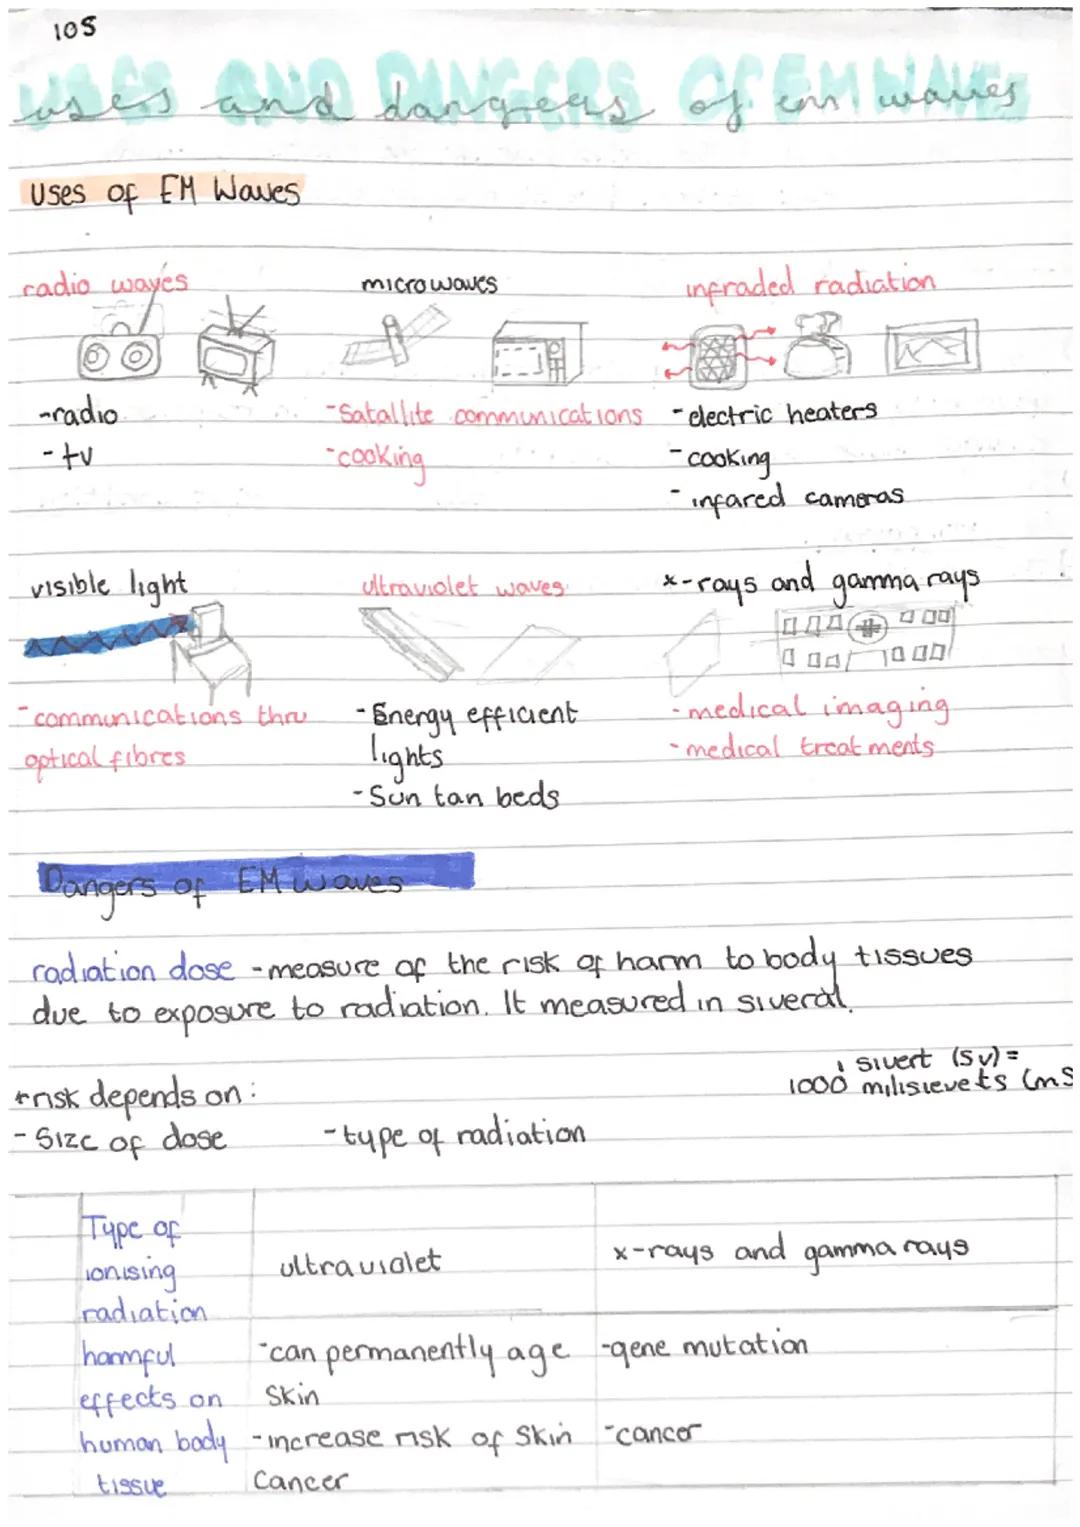 105
uses and dangers of em waves
Uses of EM Waves
radio waves
microwaves
infraded radiation
-radio
-tv
-Satallite communications
-cooking
-electric heaters
-cooking
-infared cameras
visible light
ultraviolet waves
x-rays and gamma rays
-communications thru
optical fibres
-Energy efficient
lights
-Sun tan beds
-medical imaging
-medical treatments
Dangers of EM waves
radiation dose -measure of the risk of harm to body tissues
due to exposure to radiation. It measured in siverat.
1 sivert (Sv)=
1000 milisievets (mS
*risk depends on:
-Size of dose
-type of radiation
Type of
ionising
radiation
ultraviolet
x-rays and gamma rays
harmful
effects on
human body
tissue
-can permanently age
Skin
-increase risk of Skin
Cancer
-gene mutation
-cancer